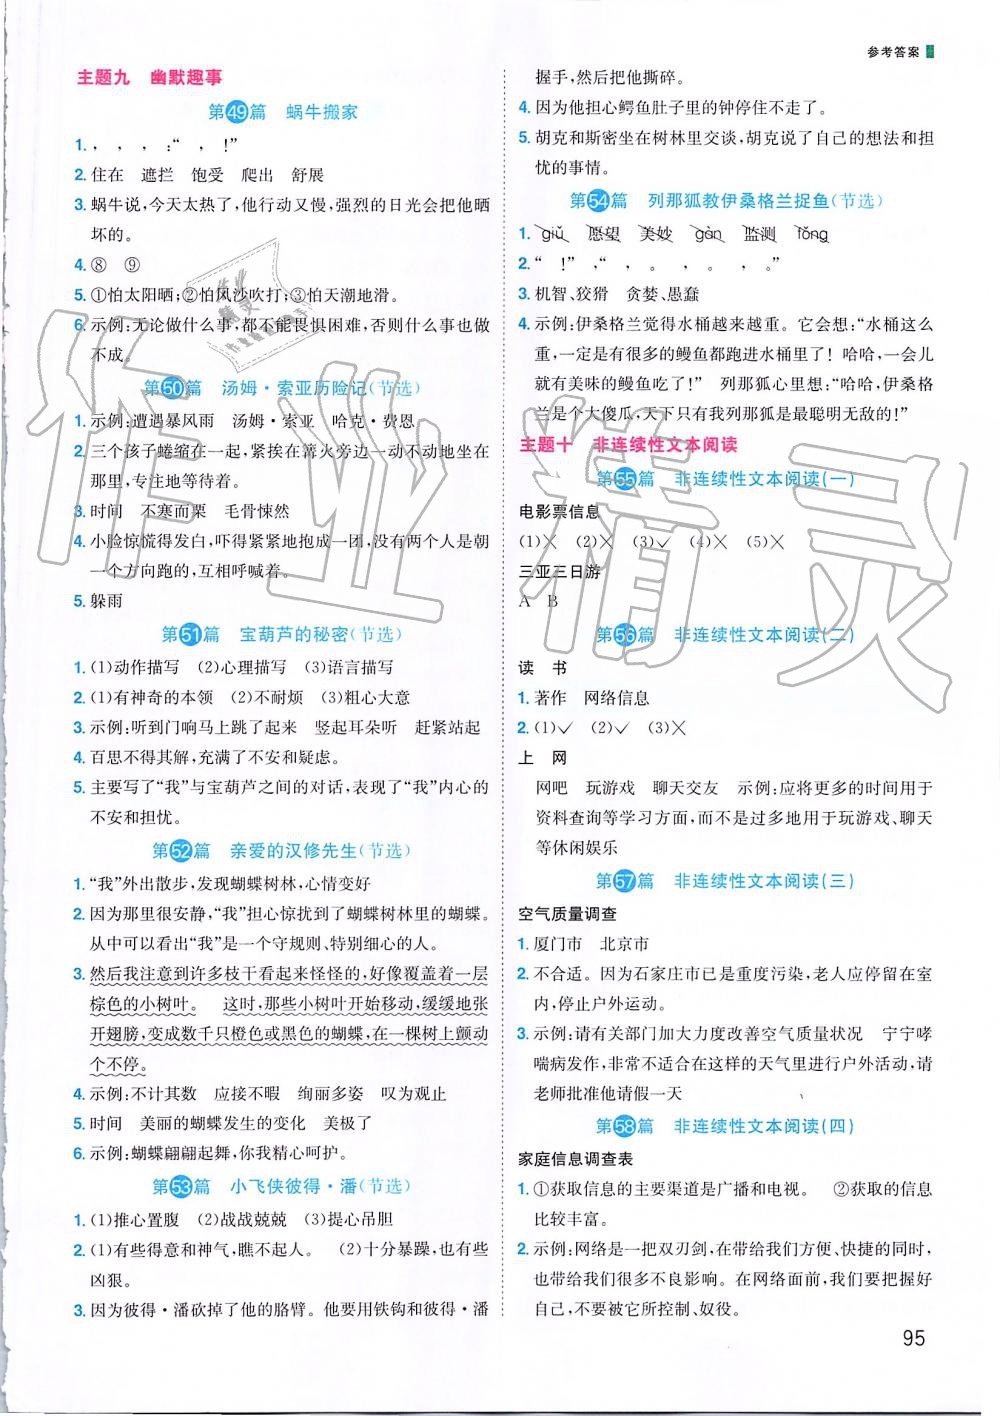 参考答案
主题九 幽默趣事
第49篇 蜗牛搬家
1. , , ,:“ , !”
2. 住在 遮拦 饱受 爬出 舒展
3. 蜗牛说,今天太热了,他行动又慢,强烈的日光会把他晒
坏的。
4. ⑧ ⑨
5. ①怕太阳晒;②怕风沙吹打;③怕天潮地滑。
6. 示例:无论做什么事,都不能畏惧困难,否则什么事也做
不成。
第50篇 汤姆·索亚历险记(节选)
1. 示例:遭遇暴风雨 汤姆·索亚 哈克·费恩
2. 三个孩子蜷缩在一起,紧挨在篝火旁边一动不动地坐在
那里,专注地等待着。
3. 时间 不寒而栗 毛骨悚然
4. 小脸惊慌得发白,吓得紧紧地抱成一团,没有两个人是朝
一个方向跑的,互相呼喊着。
5. 躲雨
第51篇 宝葫芦的秘密(节选)
1. (1)动作描写 (2)心理描写 (3)语言描写
2. (1)有神奇的本领 (2)不耐烦 (3)粗心大意
3. 示例:听到门响马上跳了起来 竖起耳朵听 赶紧站起
4. 百思不得其解,充满了不安和疑虑。
5. 主要写了“我”与宝葫芦之间的对话,表现了“我”内心的
不安和担忧。
第52篇 亲爱的汉修先生(节选)
1. “我”外出散步,发现蝴蝶树林,心情变好
2. 因为那里很安静,“我”担心惊扰到了蝴蝶树林里的蝴蝶。
从中可以看出“我”是一个守规则、特别细心的人。
3. 然后我注意到许多枝干看起来怪怪的,好像覆盖着一层
棕色的小树叶。 这时,那些小树叶开始移动,缓缓地张
开翅膀,变成数千只橙色或黑色的蝴蝶,在一棵树上颤动
个不停。
4. 示例:不计其数 应接不暇 绚丽多姿 叹为观止
5. 时间 美丽的蝴蝶发生的变化 美极了
6. 示例:蝴蝶翩翩起舞,你我精心呵护。
第53篇 小飞侠彼得·潘(节选)
1. (1)推心置腹 (2)战战兢兢 (3)提心吊胆
2. (1)有些得意和神气,瞧不起人。 (2)十分暴躁,也有些
凶狠。
3. 因为彼得·潘砍掉了他的胳臂。他要用铁钩和彼得·潘
握手,然后把他撕碎。
4. 因为他担心鳄鱼肚子里的钟停住不走了。
5. 胡克和斯密坐在树林里交谈,胡克说了自己的想法和担
忧的事情。
第54篇 列那狐教伊桑格兰捉鱼(节选)
1. giǔ 愿望 美妙 gàn 监测 tǒng
2. “ !”,“ , 。 , 。”
3. 机智、狡猾 贪婪、愚蠢
4. 示例:伊桑格兰觉得水桶越来越重。它会想:“水桶这么
重,一定有很多的鳗鱼都跑进水桶里了!哈哈,一会儿
就有美味的鳗鱼吃了!” 列那狐心里想:“哈哈,伊桑格
兰是个大傻瓜,天下只有我列那狐是最聪明无敌的!”
主题十 非连续性文本阅读
第55篇 非连续性文本阅读(一)
电影票信息
(1)✕ (2)✕ (3)✓ (4)✕ (5)✕
三亚三日游
A B
第56篇 非连续性文本阅读(二)
读 书
1. 著作 网络信息
2. (1)✓ (2)✓ (3)✕
上 网
网吧 玩游戏 聊天交友 示例:应将更多的时间用于
资料查询等学习方面,而不应过多地用于玩游戏、聊天
等休闲娱乐
第57篇 非连续性文本阅读(三)
空气质量调查
1. 厦门市 北京市
2. 不合适。因为石家庄市已是重度污染,老人应停留在室
内,停止户外运动。
3. 示例:请有关部门加大力度改善空气质量状况 宁宁哮
喘病发作,非常不适合在这样的天气里进行户外活动,请
老师批准他请假一天
第58篇 非连续性文本阅读(四)
家庭信息调查表
1. ①获取信息的主要渠道是广播和电视。 ②获取的信息
比较丰富。
2. 示例:网络是一把双刃剑,在带给我们方便、快捷的同时,
也带给我们很多不良影响。在网络面前,我们要把握好
自己,不要被它所控制、奴役。
95
作业精灵